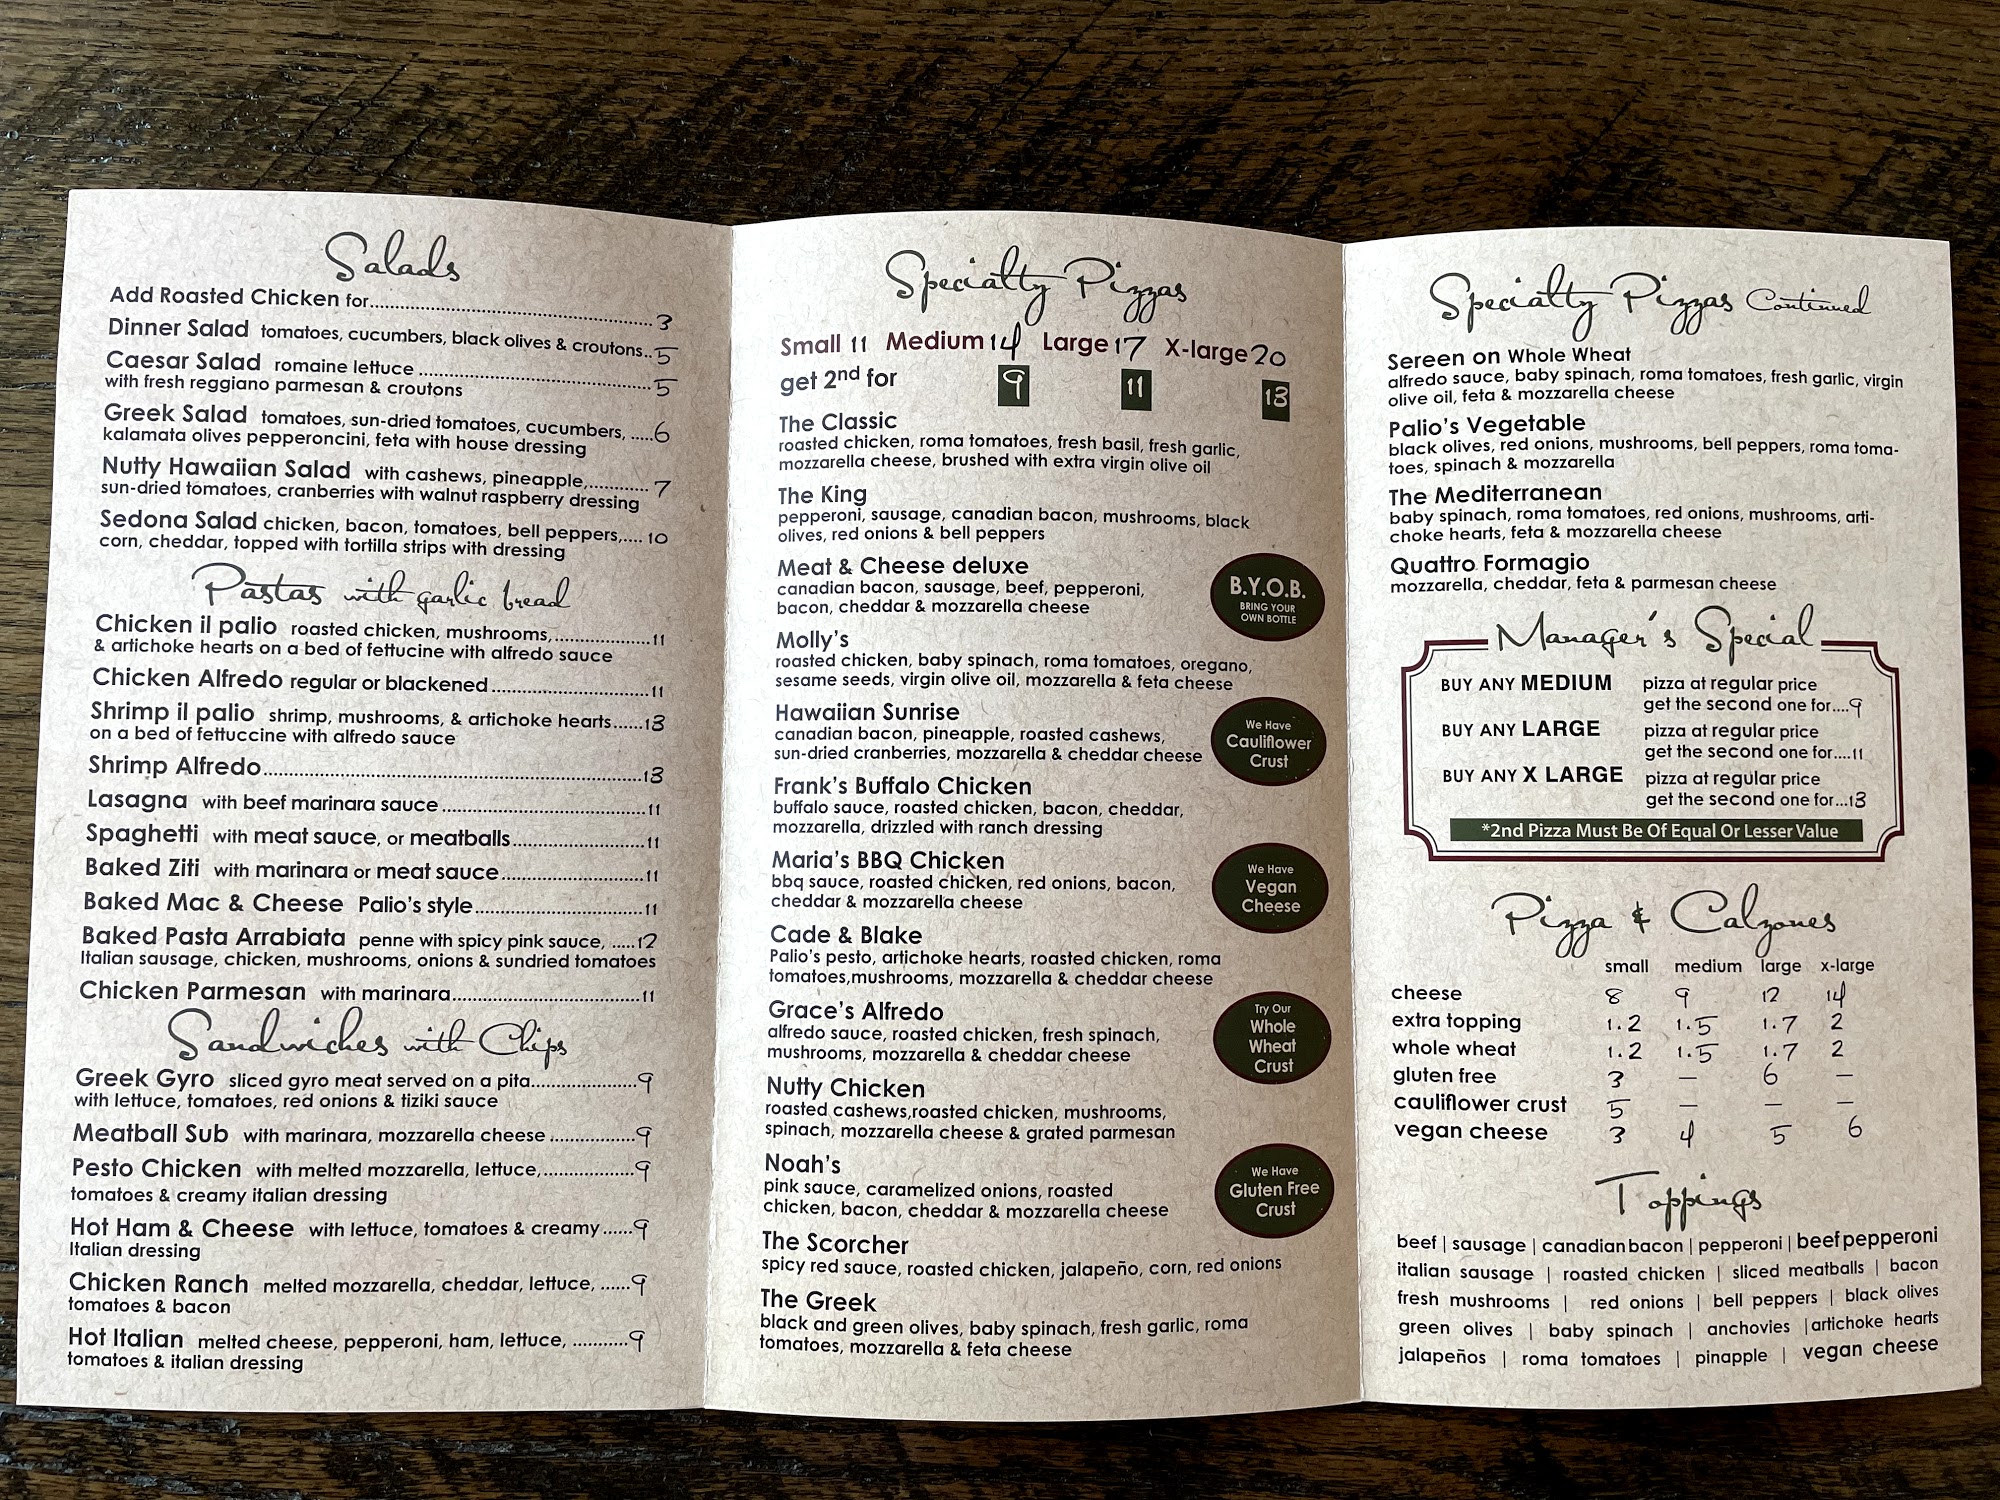 Salads
Add Roasted Chicken for.....3
Dinner Salad tomatoes, cucumbers, black olives & croutons..5
Caesar Salad romaine lettuce .....5
with fresh reggiano parmesan & croutons
Greek Salad tomatoes, sun-dried tomatoes, cucumbers, .....6
kalamata olives pepperoncini, feta with house dressing
Nutty Hawaiian Salad with cashews, pineapple,.....7
sun-dried tomatoes, cranberries with walnut raspberry dressing
Sedona Salad chicken, bacon, tomatoes, bell peppers,.... 10
corn, cheddar, topped with tortilla strips with dressing
Pastas with garlic bread
Chicken il palio roasted chicken, mushrooms,.....11
& artichoke hearts on a bed of fettucine with alfredo sauce
Chicken Alfredo regular or blackened.....11
Shrimp il palio shrimp, mushrooms, & artichoke hearts......13
on a bed of fettuccine with alfredo sauce
Shrimp Alfredo.....13
Lasagna with beef marinara sauce.....11
Spaghetti with meat sauce, or meatballs.....11
Baked Ziti with marinara or meat sauce.....11
Baked Mac & Cheese Palio's style.....11
Baked Pasta Arrabiata penne with spicy pink sauce, .....12
Italian sausage, chicken, mushrooms, onions & sundried tomatoes
Chicken Parmesan with marinara.....11
Sandwiches with Chips
Greek Gyro sliced gyro meat served on a pita.....9
with lettuce, tomatoes, red onions & tiziki sauce
Meatball Sub with marinara, mozzarella cheese.....9
Pesto Chicken with melted mozzarella, lettuce,.....9
tomatoes & creamy italian dressing
Hot Ham & Cheese with lettuce, tomatoes & creamy......9
Italian dressing
Chicken Ranch melted mozzarella, cheddar, lettuce, ......9
tomatoes & bacon
Hot Italian melted cheese, pepperoni, ham, lettuce, .....9
tomatoes & italian dressing
Specialty Pizzas
Small 11 Medium 14 Large 17 X-large 20
get 2nd for 9 11 13
The Classic
roasted chicken, roma tomatoes, fresh basil, fresh garlic,
mozzarella cheese, brushed with extra virgin olive oil
The King
pepperoni, sausage, canadian bacon, mushrooms, black
olives, red onions & bell peppers
Meat & Cheese deluxe
canadian bacon, sausage, beef, pepperoni,
bacon, cheddar & mozzarella cheese
Molly's
roasted chicken, baby spinach, roma tomatoes, oregano,
sesame seeds, virgin olive oil, mozzarella & feta cheese
Hawaiian Sunrise
canadian bacon, pineapple, roasted cashews,
sun-dried cranberries, mozzarella & cheddar cheese
Frank's Buffalo Chicken
buffalo sauce, roasted chicken, bacon, cheddar,
mozzarella, drizzled with ranch dressing
Maria's BBQ Chicken
bbq sauce, roasted chicken, red onions, bacon,
cheddar & mozzarella cheese
Cade & Blake
Palio's pesto, artichoke hearts, roasted chicken, roma
tomatoes,mushrooms, mozzarella & cheddar cheese
Grace's Alfredo
alfredo sauce, roasted chicken, fresh spinach,
mushrooms, mozzarella & cheddar cheese
Nutty Chicken
roasted cashews,roasted chicken, mushrooms,
spinach, mozzarella cheese & grated parmesan
Noah's
pink sauce, caramelized onions, roasted
chicken, bacon, cheddar & mozzarella cheese
The Scorcher
spicy red sauce, roasted chicken, jalapeño, corn, red onions
The Greek
black and green olives, baby spinach, fresh garlic, roma
tomatoes, mozzarella & feta cheese
B.Y.O.B.
BRING YOUR
OWN BOTTLE
We Have
Cauliflower
Crust
We Have
Vegan
Cheese
Try Our
Whole
Wheat
Crust
We Have
Gluten Free
Crust
Specialty Pizzas Continued
Sereen on Whole Wheat
alfredo sauce, baby spinach, roma tomatoes, fresh garlic, virgin
olive oil, feta & mozzarella cheese
Palio's Vegetable
black olives, red onions, mushrooms, bell peppers, roma toma-
toes, spinach & mozzarella
The Mediterranean
baby spinach, roma tomatoes, red onions, mushrooms, arti-
choke hearts, feta & mozzarella cheese
Quattro Formagio
mozzarella, cheddar, feta & parmesan cheese
Manager's Special
BUY ANY MEDIUM pizza at regular price
get the second one for....9
BUY ANY LARGE pizza at regular price
get the second one for....11
BUY ANY X LARGE pizza at regular price
get the second one for...13
*2nd Pizza Must Be Of Equal Or Lesser Value
Pizza & Calzones
small medium large x-large
cheese 8 9 12 14
extra topping 1.2 1.5 1.7 2
whole wheat 1.2 1.5 1.7 2
gluten free 3 – 6 –
cauliflower crust 5 – – –
vegan cheese 3 4 5 6
Toppings
beef | sausage | canadian bacon | pepperoni | beef pepperoni
italian sausage | roasted chicken | sliced meatballs | bacon
fresh mushrooms | red onions | bell peppers | black olives
green olives | baby spinach | anchovies | artichoke hearts
jalapeños | roma tomatoes | pinapple | vegan cheese